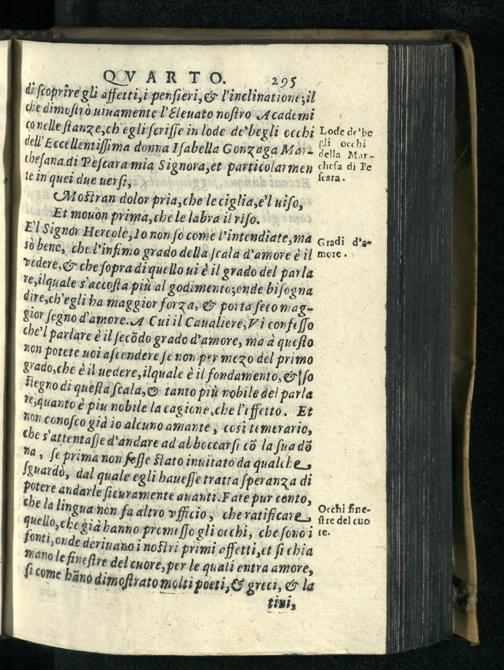 QVARTO. 295
di scoprire gli affetti, i pensieri, & l'inclinatione; il
che dimostrò uiuamente l'Eleuato nostro Academi
co nelle stanze, ch'egli scrisse in lode de'begli occhi
dell'Eccellentissima donna Isabella Gonzaga Mar-
chesana di Pescara mia Signora, et particolarmen
te in quei due uersi,
Mostran dolor pria, che le ciglia, e'l uiso,
Et mouon prima, che le labra il riso.
E'l Signor Hercole, Io non so come l'intendiate, ma
sò bene, che l'infimo grado della scala d'amore è il
vedere, & che sopra di quello ui è il grado del parla
re, ilquale s'accosta più al godimento; onde bisogna
dire, ch'egli ha maggior forza, & porta seco mag-
gior segno d'amore. A Cui il Caualiere, Vi confesso
che'l parlare è il secōdo grado d'amore, ma à questo
non potete uoi ascendere se non per mezo del primo
grado, che è il uedere, ilquale è il fondamento, & so
stegno di questa scala, & tanto più nobile del parla
re, quanto è piu nobile la cagione, che l'effetto. Et
non conosco già io alcuno amante, così temerario,
che s'attentasse d'andare ad abboccarsi cō la sua dō
na, se prima non fosse stato inuitato da qualche
sguardo, dal quale egli hauesse tratta speranza di
potere andarle sicuramente auanti. Fate pur conto,
che la lingua non fa altro vfficio, che ratificare
quello, che già hanno promesso gli occhi, che sono i
fonti, onde deriuano i nostri primi affetti, et si chia
mano le finestre del cuore, per le quali entra amore,
si come hāno dimostrato molti poeti, & greci, & la
tini,
Lode de'be
gli occhi
della Mar-
chesa di Pe
scara.
Gradi d'a-
more.
Occhi fine-
stre del cuo
re.